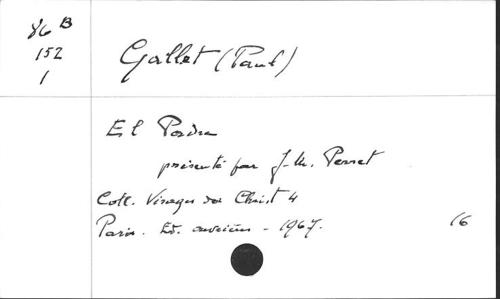 86 B
152
1
Gallet (Paul)
El Padre
présenté par J.M. Perret
Coll. Visages du Christ 4
Paris. Ed. ouvrières - 1967. 16